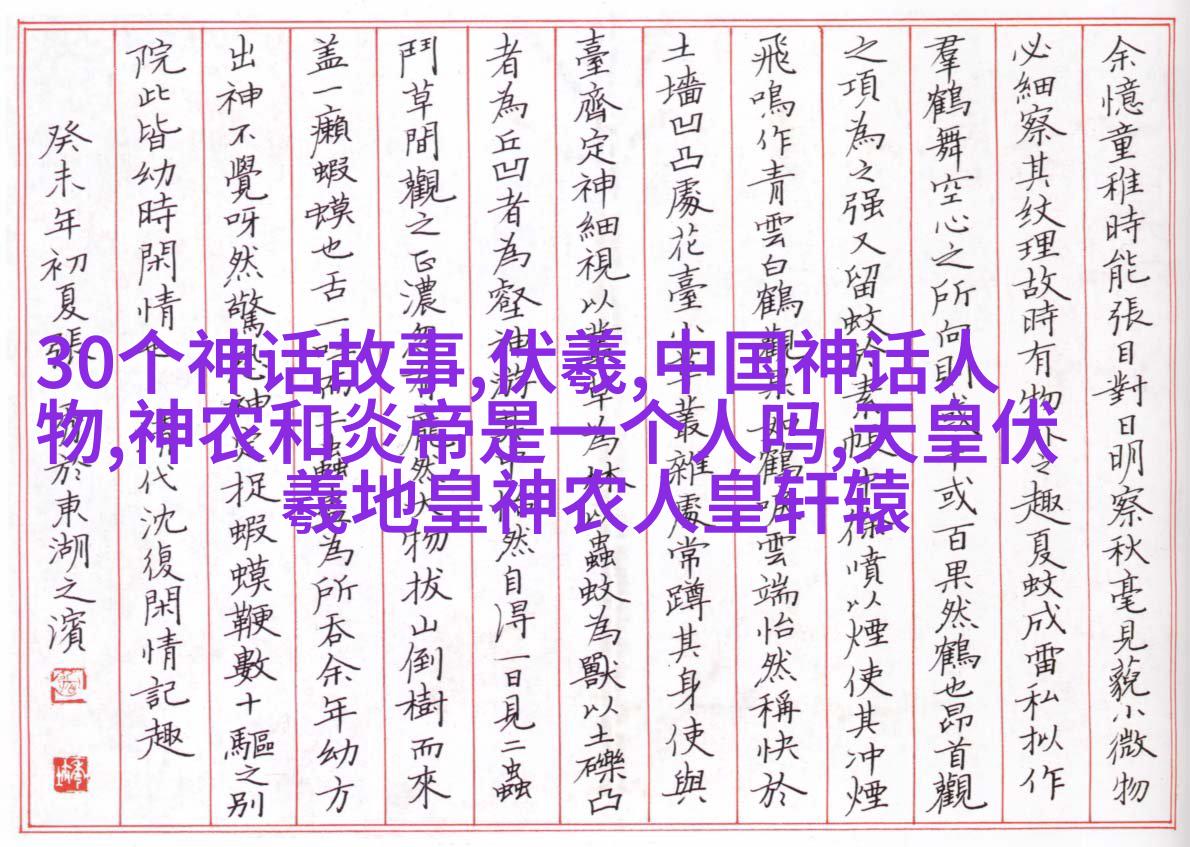 余憶童稚時能張目對日明察秋毫見藐小微物
必細察其纹理故時有物外之趣夏蚊成雷私拟作
羣鶴舞空心之所向則或千或百果然鶴也昂首觀
之項為之强又留蚊於素帳中徐噴以煙使其冲煙
飛鳴作青雲白鶴觀果如鶴唳雲端怡然稱快於
土墻凹凸處花臺小草叢雜處常蹲其身使與
臺齊定神細視以叢草為林以蟲蚊為獸以土礫凸
者為丘凹者為壑神游其中怡然自得一日見二蟲
鬥草間觀之正濃忽有龐然大物拔山倒樹而來
盖一癩蝦蟆也舌一吐而二蟲盡為所吞余年幼方
出神不覺呀然驚恐神定捉蝦蟆鞭數十驅之別
院此皆幼時閑情 代沈復閑情記趣
癸未年初夏張 於東湖之濱
30个神话故事,伏羲,中国神话人
物,神农和炎帝是一个人吗,天皇伏
羲地皇神农人皇轩辕